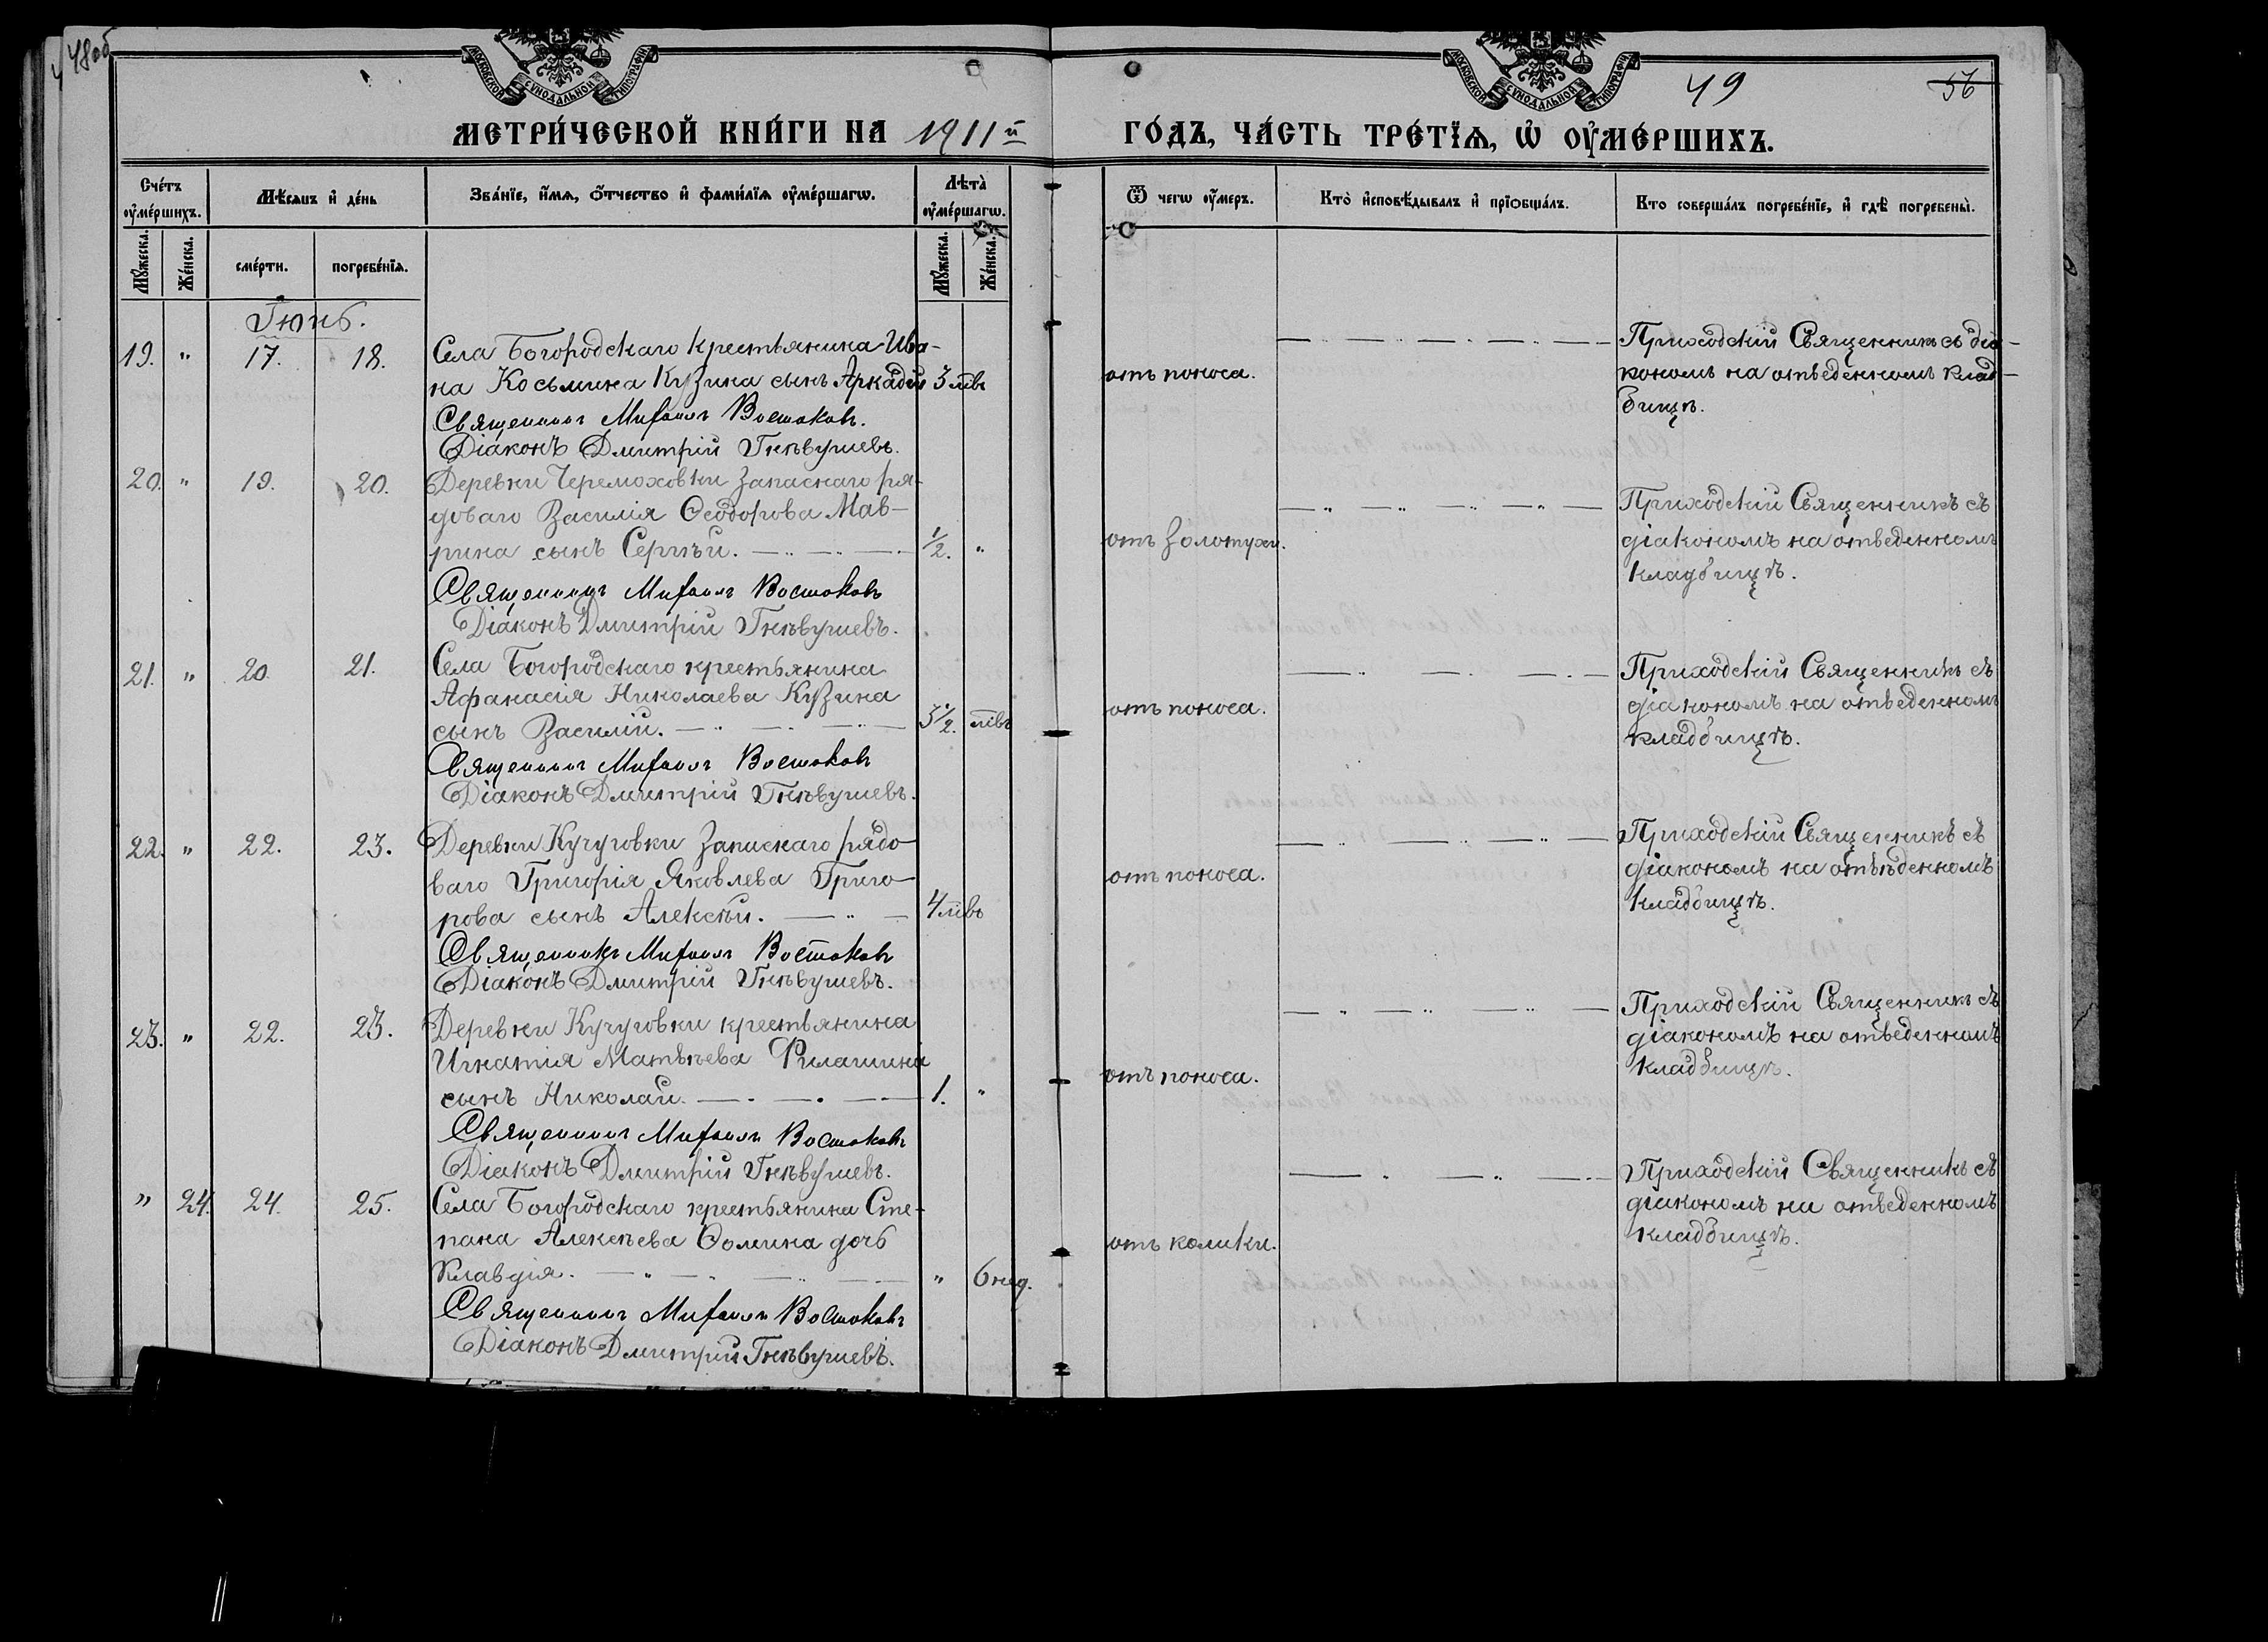 48об
МОСКОВСКОЙ СѴНОДАЛЬНОЙ ТИПОГРАФІИ
МОСКОВСКОЙ СѴНОДАЛЬНОЙ ТИПОГРАФІИ
49
56
МЕТРИ́ЧЕСКОЙ КНИ́ГИ НА 1911й ГО́ДЪ, ЧА́СТЬ ТРЕ́ТЇѦ, Ѡ҆ ОУ҆МЕ́РШИХЪ.
Сче́тъ оу҆ме́ршихъ.
Мѣ́сѧцъ и҆ де́нь
Зва́нїе, и҆́мѧ, ѻ҆́тчество и҆ фами́лїѧ оу҆ме́ршагѡ.
Лѣта̀ оу҆ме́ршагѡ.
Ѿ чегѡ оу҆́меръ.
Кто̀ и҆сповѣ́дывалъ и҆ прїѻбща́лъ.
Кто соверша́лъ погребе́нїе, и҆ гдѣ̀ погребены̀.
Мꙋ́жеска.
Же́нска.
сме́рти.
погребе́нїѧ.
Мꙋ́жеска.
Же́нска.
Іюнь.
19. " 17. 18. Села Богородскаго крестьянина Ива-
на Косьмина Кузина сынъ Аркадій 3 лѣтъ
Священникъ Михаилъ Востоковъ.
Діаконъ Дмитрій Гнѣвушевъ.
отъ поноса.
Приходскій Священникъ съ діа-
кономъ на отведенномъ клад-
бищѣ.
20. " 19. 20. Деревни Черемоховки запаснаго ря-
доваго Василія Ѳеодорова Мав-
рина сынъ Сергѣй. 1/2. "
Священникъ Михаилъ Востоковъ
Діаконъ Дмитрій Гнѣвушевъ.
отъ золотухи.
Приходскій Священникъ съ
діакономъ на отведенномъ
кладбищѣ.
21. " 20. 21. Села Богородскаго крестьянина
Афанасія Николаева Кузина
сынъ Василій. 3 1/2. лѣтъ
Священникъ Михаилъ Востоковъ
Діаконъ Дмитрій Гнѣвушевъ.
отъ поноса.
Приходскій Священникъ съ
діакономъ на отведенномъ
кладбищѣ.
22. " 22. 23. Деревни Кучуговки запаснаго рядо-
ваго Григорія Яковлева Григо-
рова сынъ Алексѣй. 4 лѣтъ
Священникъ Михаилъ Востоковъ
Діаконъ Дмитрій Гнѣвушевъ.
отъ поноса.
Приходскій Священникъ съ
діакономъ на отвѣденномъ
кладбищѣ.
23. " 22. 23. Деревни Кучуговки крестьянина
Игнатія Матвѣева Филашина
сынъ Николай. 1. "
Священникъ Михаилъ Востоковъ
Діаконъ Дмитрій Гнѣвушевъ.
отъ поноса.
Приходскій Священникъ съ
діакономъ на отведенномъ
кладбищѣ.
" 24. 24. 25. Села Богородскаго крестьянина Сте-
пана Алексѣева Ѳомина дочь
Клавдія. " 6 нед.
Священникъ Михаилъ Востоковъ
Діаконъ Дмитрій Гнѣвушевъ.
отъ колики.
Приходскій Священникъ съ
діакономъ на отведенномъ
кладбищѣ.